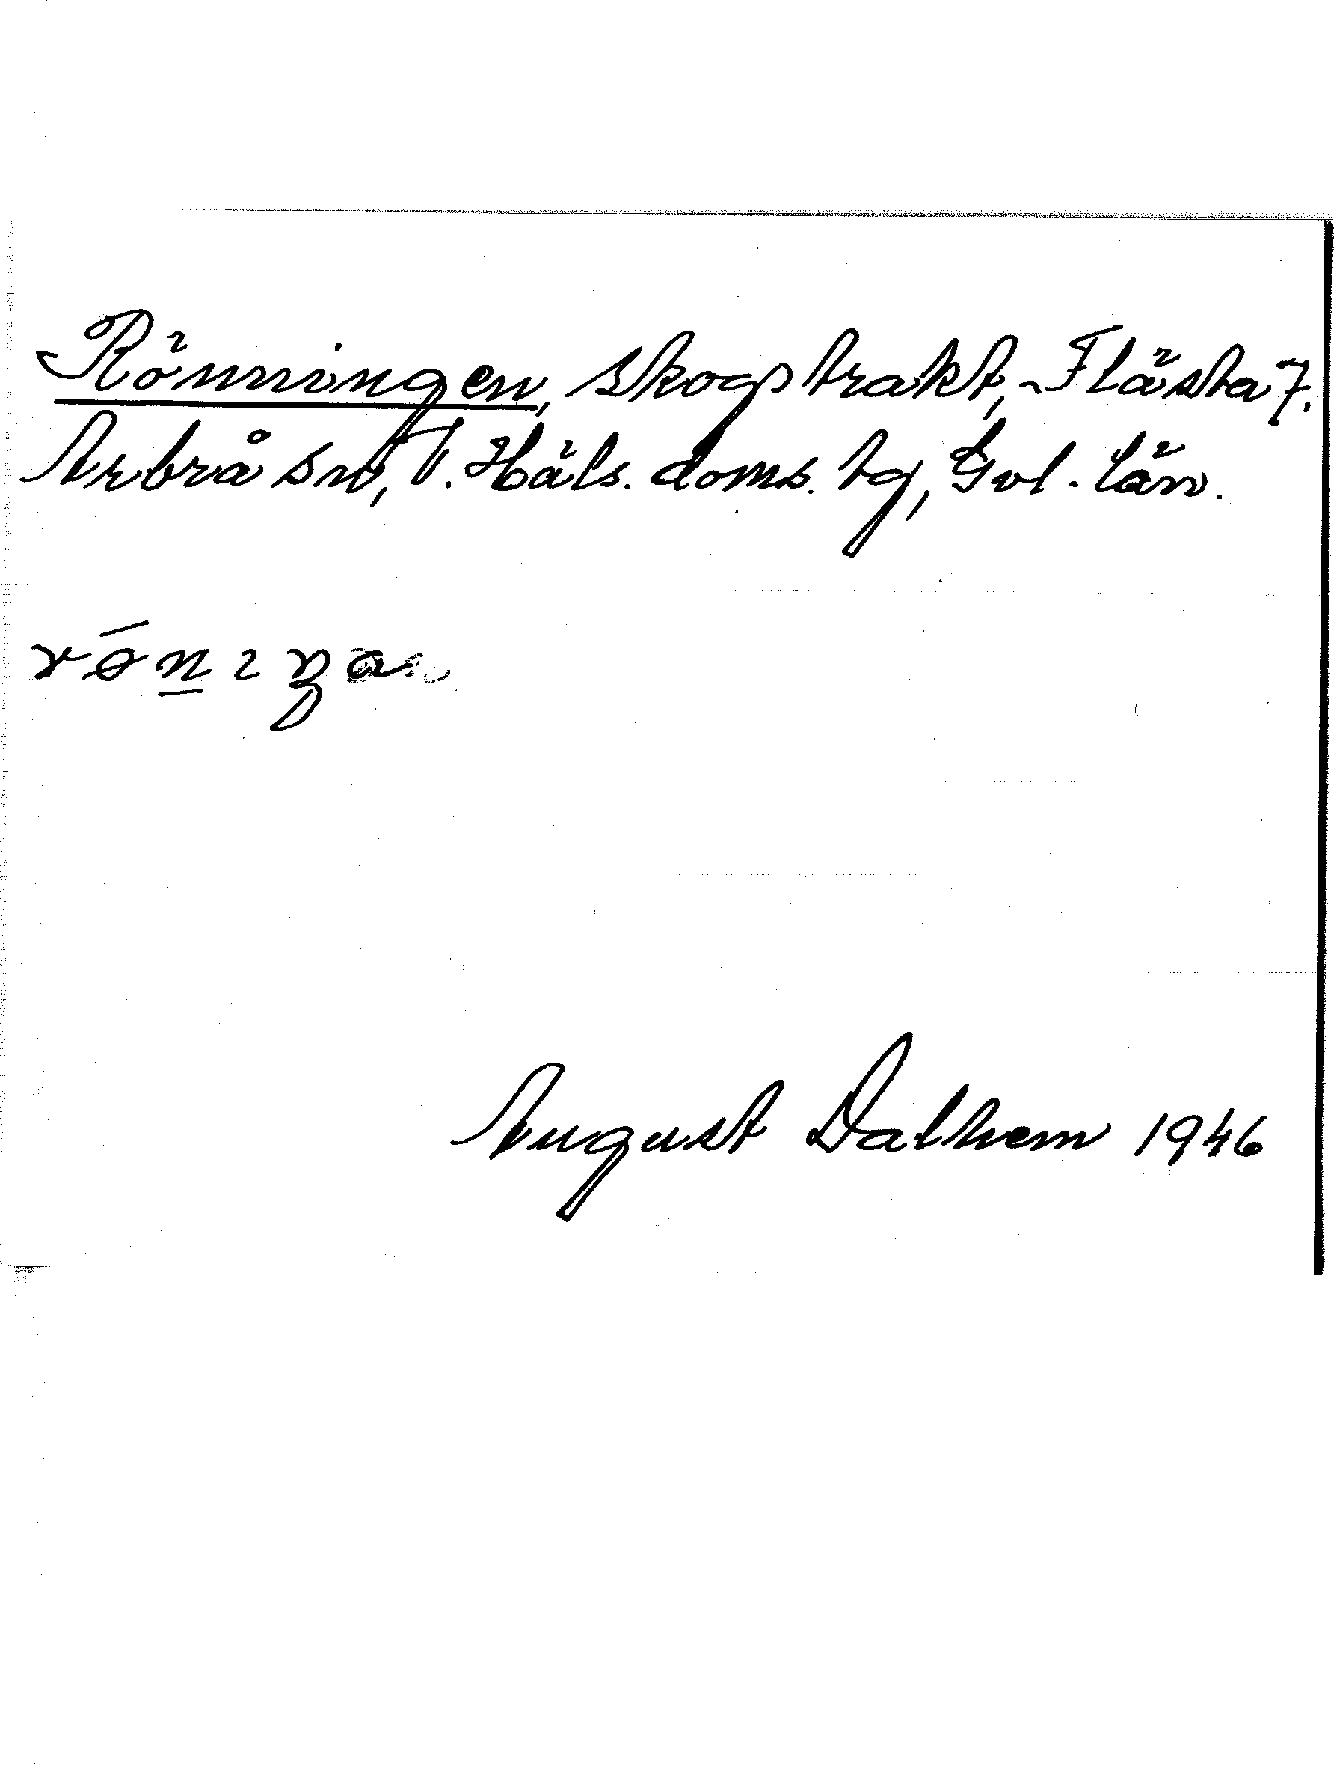 Rönningen, skogstrakt, Flästa 7.
Arbrå sn, V. Häls. doms. tg, Gvl. län.
rö́n̲ıŋa
August Dalhem 1946